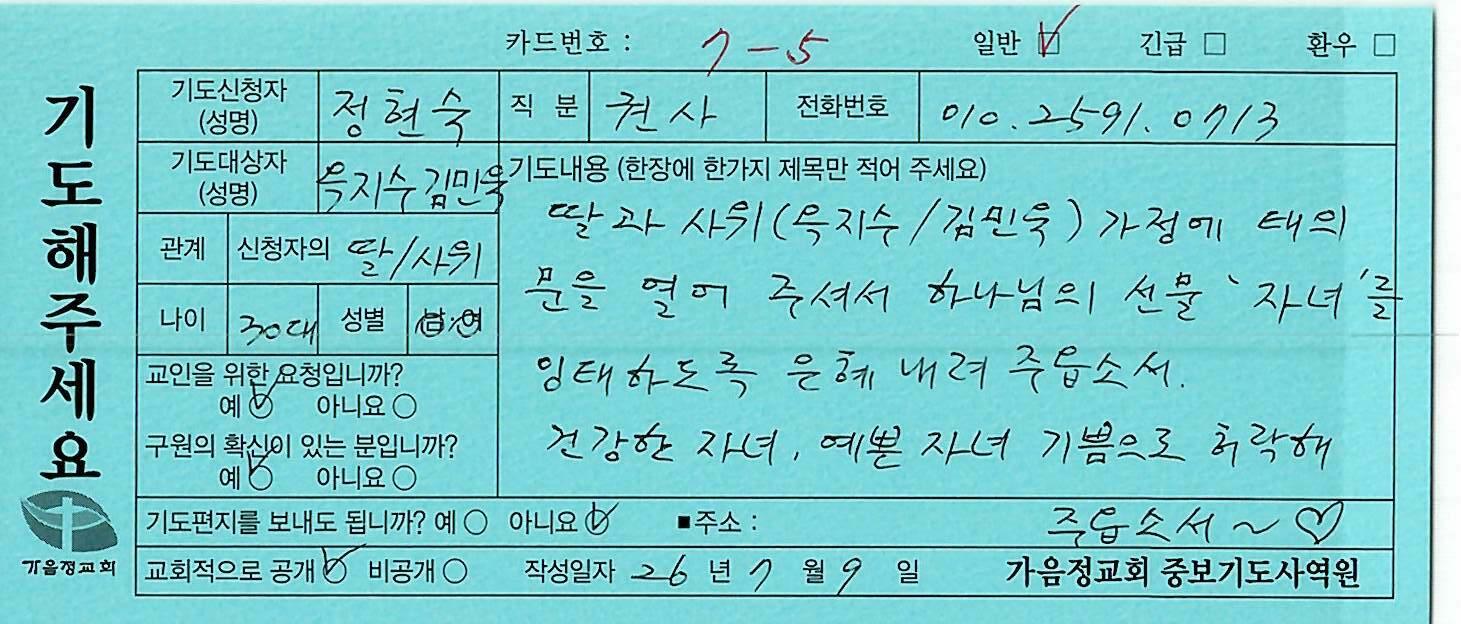 카드번호 : 7-5 일반 ☑ 긴급 □ 환우 □
기도해주세요
기도신청자 (성명) 정현숙 직 분 권사 전화번호 010.2591.0713
기도대상자 (성명) 옥지수 김민욱
관계 신청자의 딸/사위
나이 30대 성별 남·여
교인을 위한 요청입니까?
예 ☑ 아니요 ○
구원의 확신이 있는 분입니까?
예 ☑ 아니요 ○
기도내용 (한장에 한가지 제목만 적어 주세요)
딸과 사위(옥지수/김민욱) 가정에 태의
문을 열어 주셔서 하나님의 선물 '자녀'를
잉태하도록 은혜 내려 주옵소서.
건강한 자녀, 예쁜 자녀 기쁨으로 허락해
주옵소서~♡
기도편지를 보내도 됩니까? 예 ○ 아니요 ☑ ■주소 :
교회적으로 공개 ☑ 비공개 ○ 작성일자 26 년 7 월 9 일 가음정교회 중보기도사역원
가음정교회